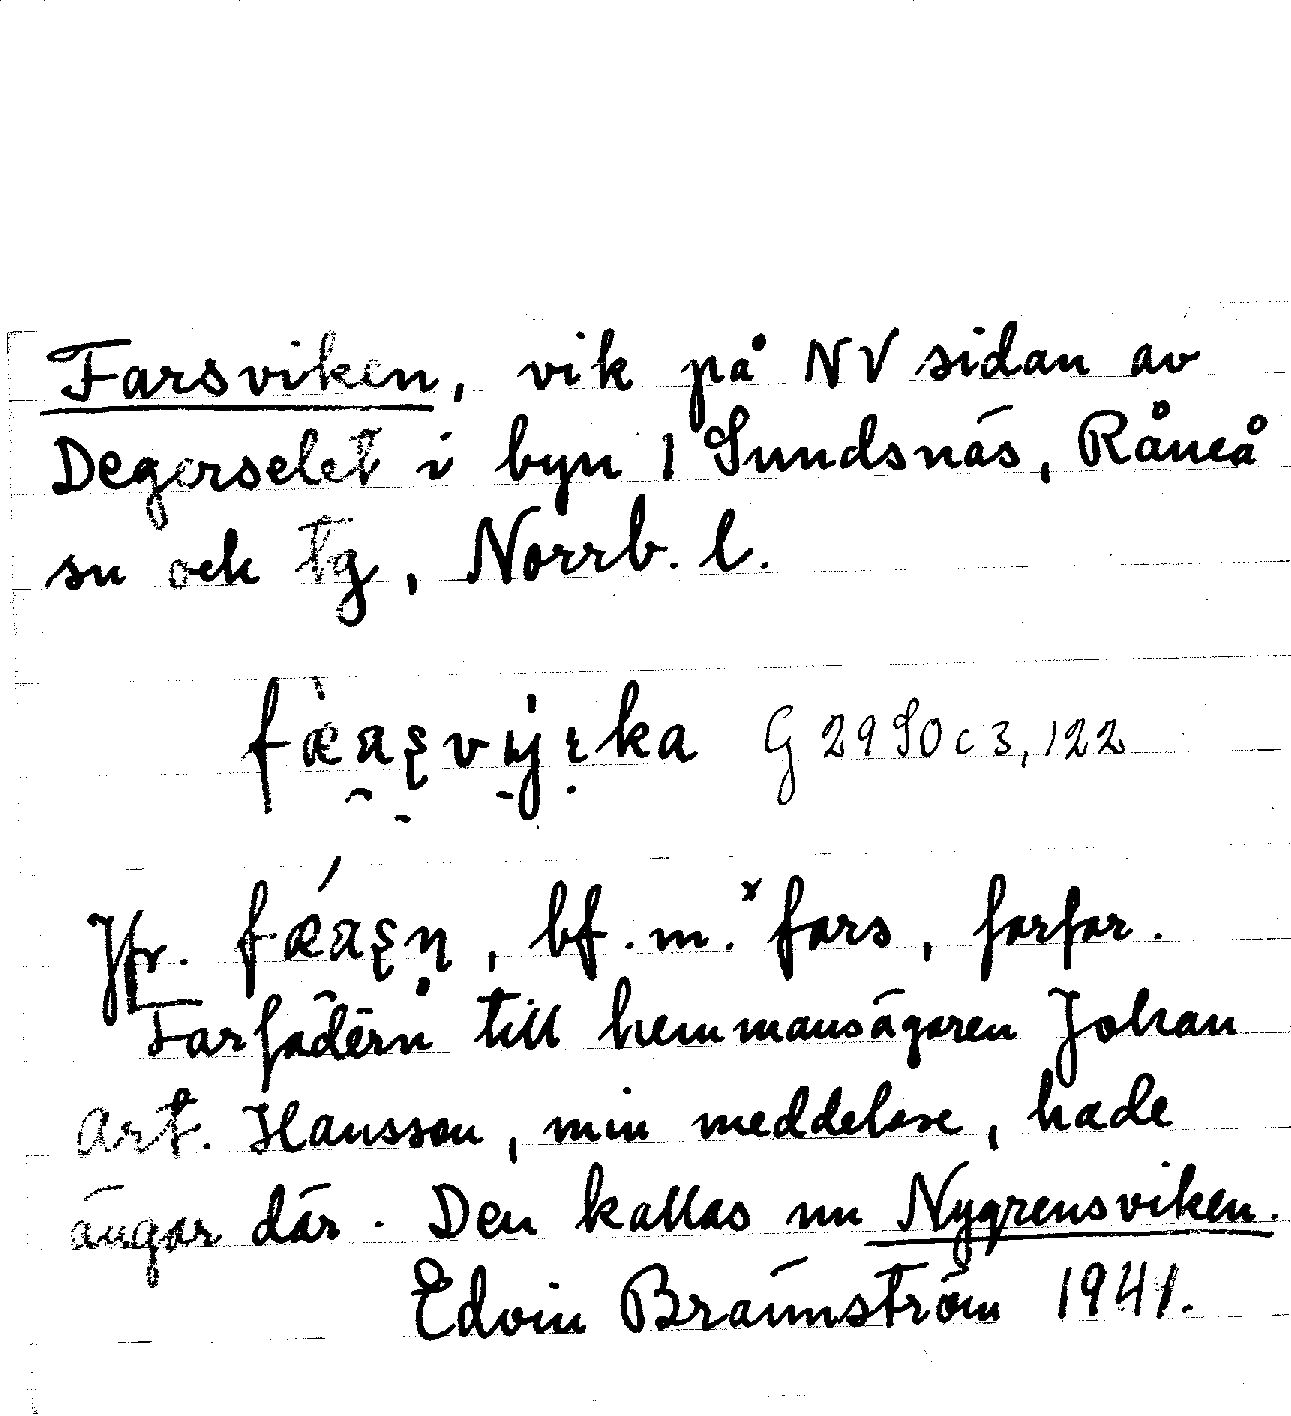 Farsviken, vik på NV sidan av
Degerselet i byn 1 Sundsnäs, Råneå
sn och tg, Norrb. l.
G 2950 c 3, 122
Jfr. , bf. m. ˣfars, farfar.
Farfadern till hemmansägaren Johan
Art. Hansson, min meddelare, hade
ängar där. Den kallas nu Nygrensviken.
Edvin Brännström 1941.